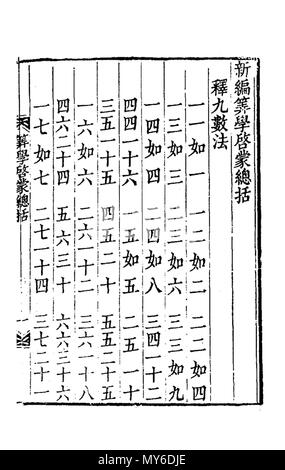 新編筭學啓蒙總括
釋九數法
一一如一 一二如二 二二如四
一三如三 二三如六 三三如九
一四如四 二四如八 三四一十二
四四一十六 一五如五 二五一十
三五一十五 四五二十 五五二十五
一六如六 二六一十二 三六一十八
四六二十四 五六三十 六六三十六
一七如七 二七一十四 三七二十一
筭學啓蒙總括
alamy
Image ID: MY6DJE
www.alamy.com